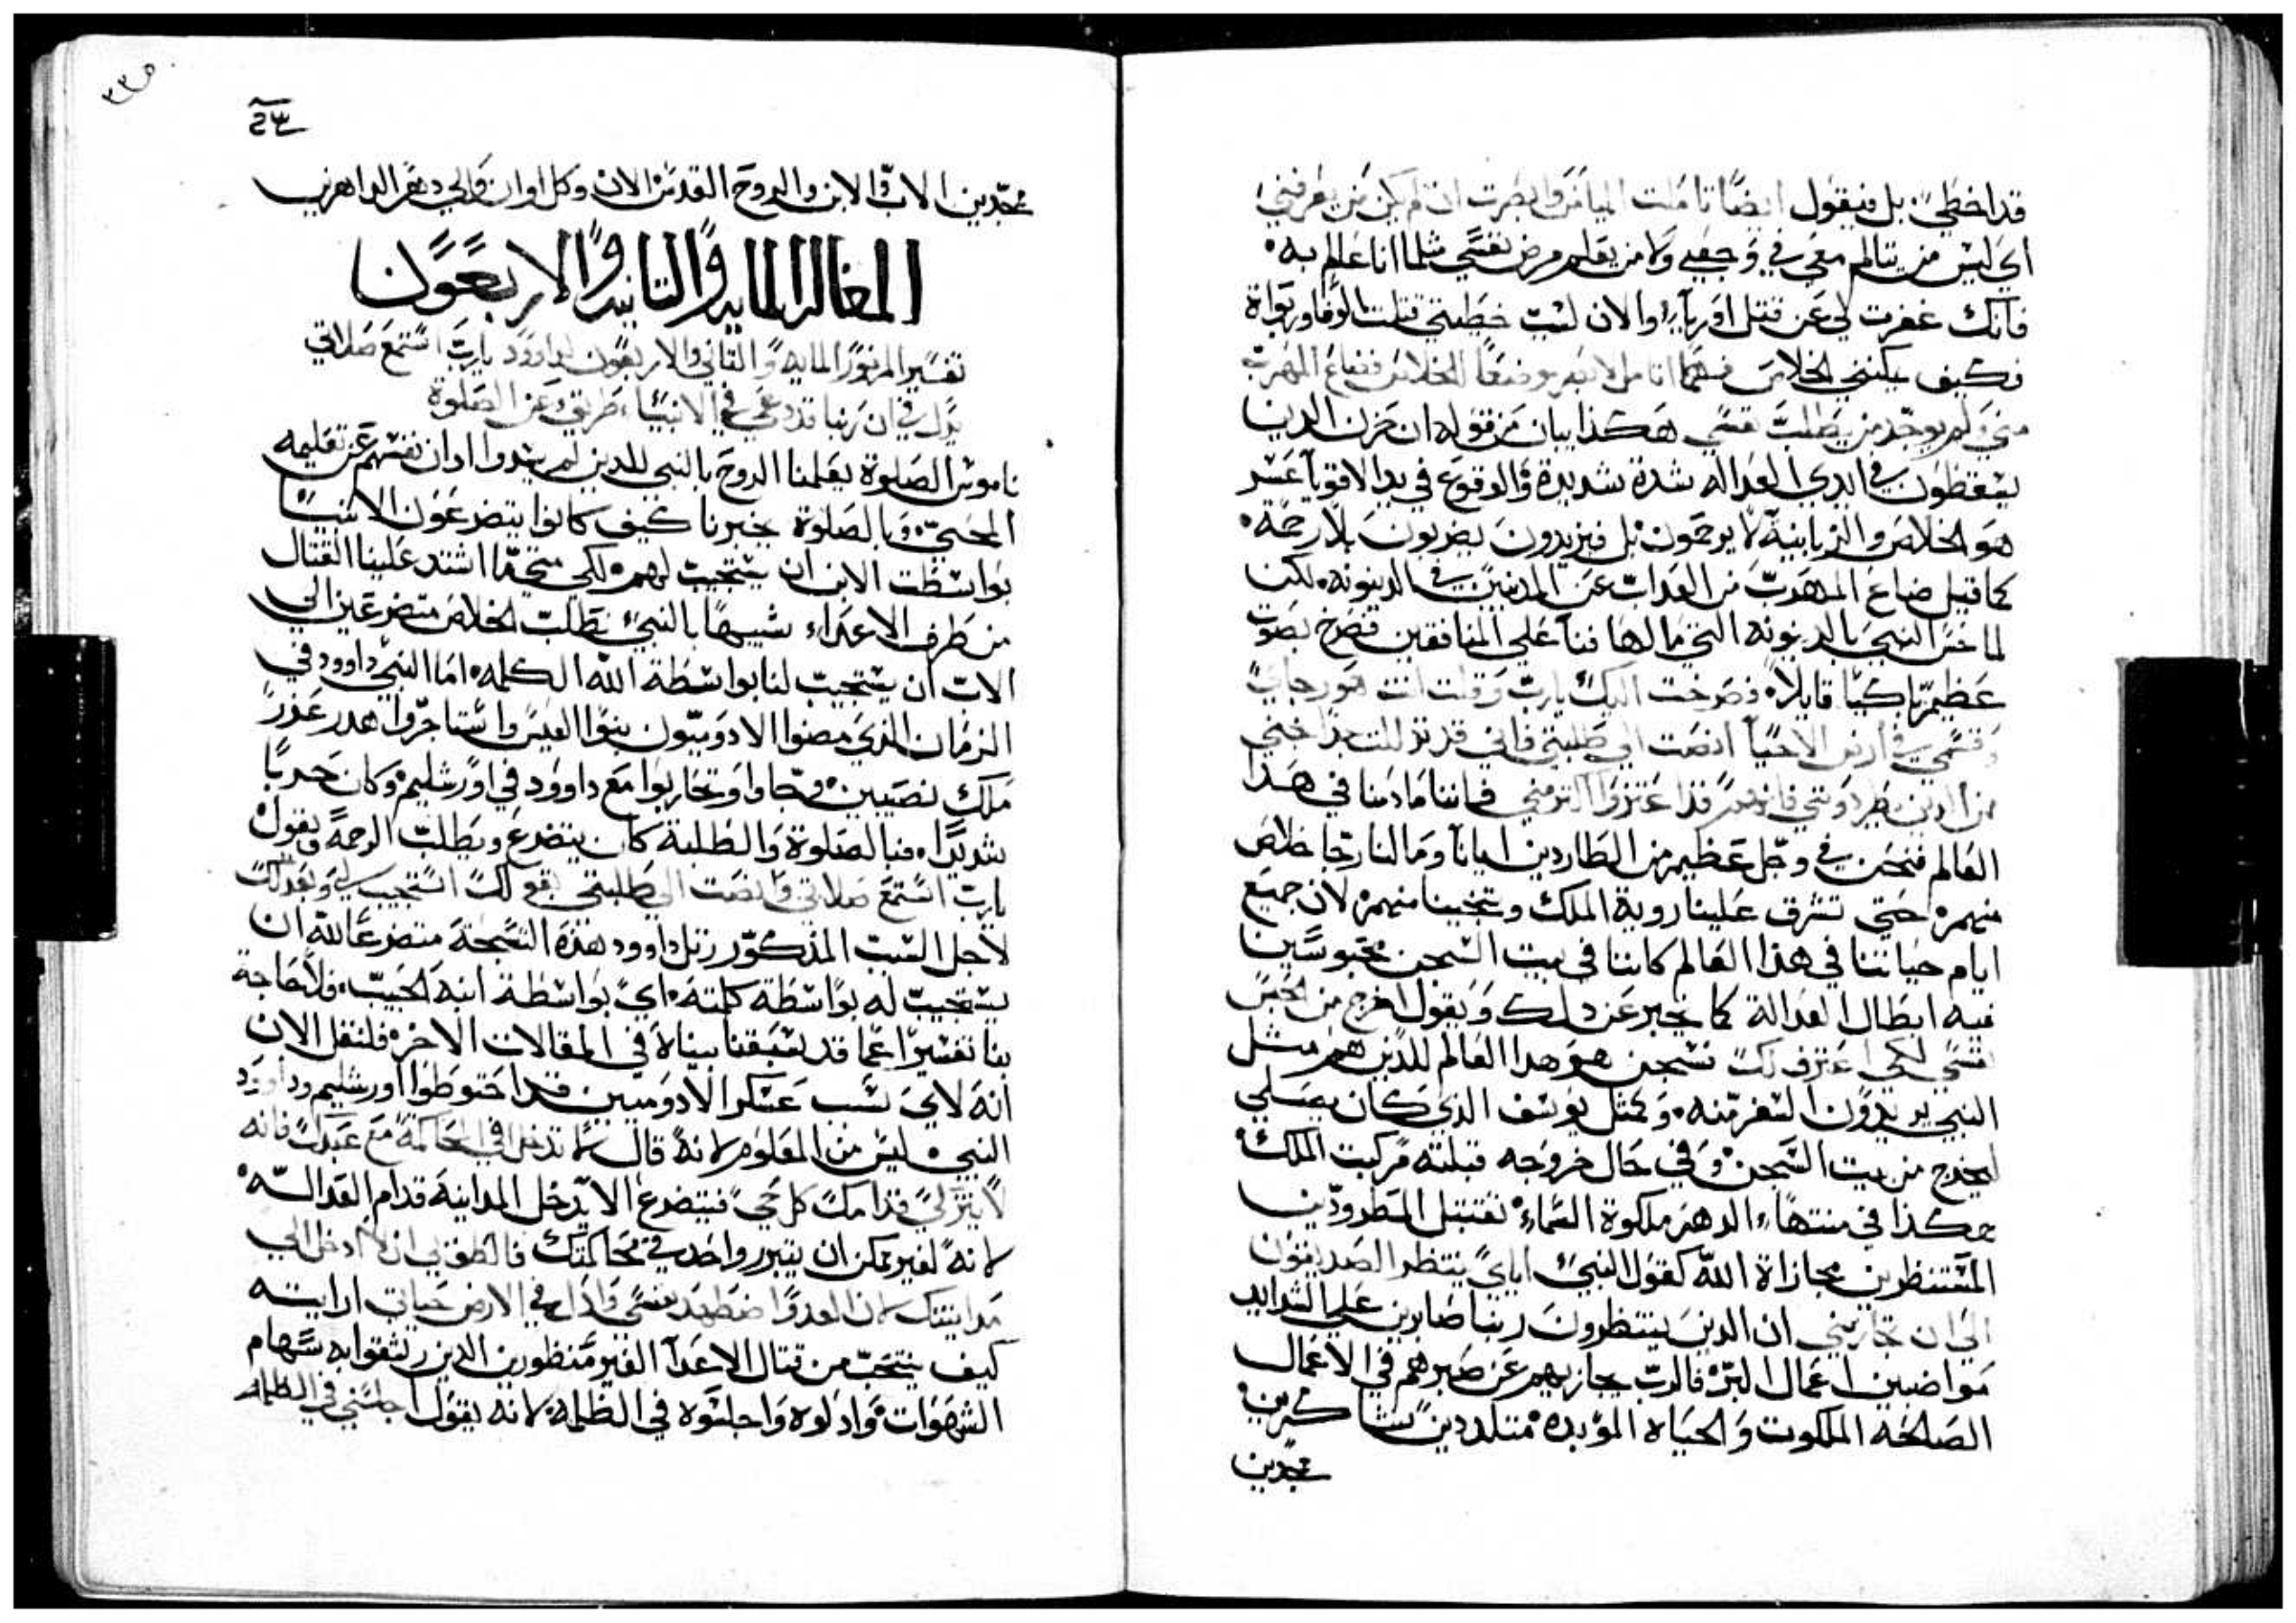 قد اخطي بل فيقول ايضًا تاملت الميامن وابصرت ان لم يكن من يعرفني
اي ليس من يتالم معي في وجعي ولا من يعلم مرض نفسي مثلما انا عالم به
فانك غفرت لي عن قتل اوريا والان لسبب خطيتي قتلت الوفا وربواة
فكيف يمكنني الخلاص فضاع المهرب
مني ولم يوجد من يطلب نفسي هكذا بيان من قوله ان حزن الدين
يسقطون في ايدي العداله شدة شديدة والوقوع في يد الاقويا عسر
هو الخلاص والزبانية لا يرحمون بل فيزيدون يضربون بلا رحمة
كما قيل ضاع المهرب من العداب عن المدنيين في الدينونه لكن
لما حس النبي بالدينونه التي مالها فنا على المنافقين فصرخ بصوت
عظيم باكيًا قايلا فصرخت اليك يارب وقلت انت هو رجاي
وقسمي في ارض الاحيا انصت الى طلبتي فاني قد تذللت جدا نجني
من الدين يطردونني فانهم قد اعتزوا اكثر مني فاننا مادمنا في هدا
العالم فنحن في وجل عظيم من الطاردين ايانا ومالنا رجا خلاص
منهم حتي تشرق علينا روية الملك وتنجينا منهم لان جميع
ايام حياتنا في هذا العالم كاننا في بيت السجن محبوسين
فيه ابطال العدالة كما يخبر عن دلك ويقول اخرج من الحبس
نفسي لكي اعترف لك سجن هو هدا العالم للدين هم مثل
النبي يريدون السفر منه وكمثل يوسف الذي كان يصلي
ليخرج من بيت السجن وفي حال خروجه قبلته مركبت الملك
هكذا في منتهاء الدهر ملكوة السماء تقتبل المطرودين
المستنظرين مجازاة الله كقول النبي اياي ينتظر الصديقون
الى ان تجازيني ان الدين ينتظرون ربنا صابرين على الشدايد
مواضبين اعمال البر فالرب يجازيهم عن صبرهم في الاعمال
الصالحه الملكوت والحياه الموبده متلددين شاكرين
مجدين
٢٣٥
مجدين الاب والابن والروح القدس الان وكل اوان والي دهر الداهرين
المقاله المايه والتانيه والاربعون
تفسير المزمور المايه والتاني والاربعون لداوود يارب استمع صلاتي
يدل في ان ربنا قد دعي في الانبيا طريق وعن الصلوة
ناموس الصلوة يعلمنا الروح بالنبي للدين لم يبدوا ادان نفسهم عن تعليمه
المحيي وبالصلوة يخبرنا كيف كانوا يتضرعون الانبيا
بواسطت الابن ان يستجيب لهم لكي متى ما اشتد علينا القتال
من طرف الاعداء شبيهًا بالنبي نطلب الخلاص متضرعين الى
الاب ان يستجيب لنا بواسطة الله الكلمه اما النبي داوود في
الزمان الذي مضوا الادوميون بنوا العيس واستاجروا هدر عدر
ملك نصيبين وجاوا وتحاربوا مع داوود في اورشليم وكان حربا
شديدًا فبالصلوة والطلبة كان يتضرع ويطلب الرحمة ويقول
يارب استمع صلاتي وانصت الى طلبتي بقولك استجيب لي وبعدلك
لاجل السبب المدكور رتل داوود هذه التسبحة متضرعا لله ان
يستجيب له بواسطة كلمته اي بواسطة ابنه الحبيب فلا حاجة
بنا تفسيرًا عما قد سبقنا بيناه في المقالات الاخر فلنقل الان
انه لاي سبب عسكر الادوميين قد احتوطوا اورشليم وداوود
النبي ليس من المعلوم لانه قال لا تدخل في المحاكمة مع عبدك فانه
لا يتزكى قدامك كل حي فيتضرع الا يدخل المداينة قدام العداله
لانه لغير ممكن ان يتبرر واحد في محاكمتك فالطف بي ان لا ادخل الى
مداينتك لان العدو اضطهد نفسي واذل في الارض حياتي ارايته
كيف ينتحب من قتال الاعدا الغير منظورين الدين رشقوا به سهام
الشهوات وادلوه واجلسوه في الظلمه لانه يقول اجلسني في الظلمه